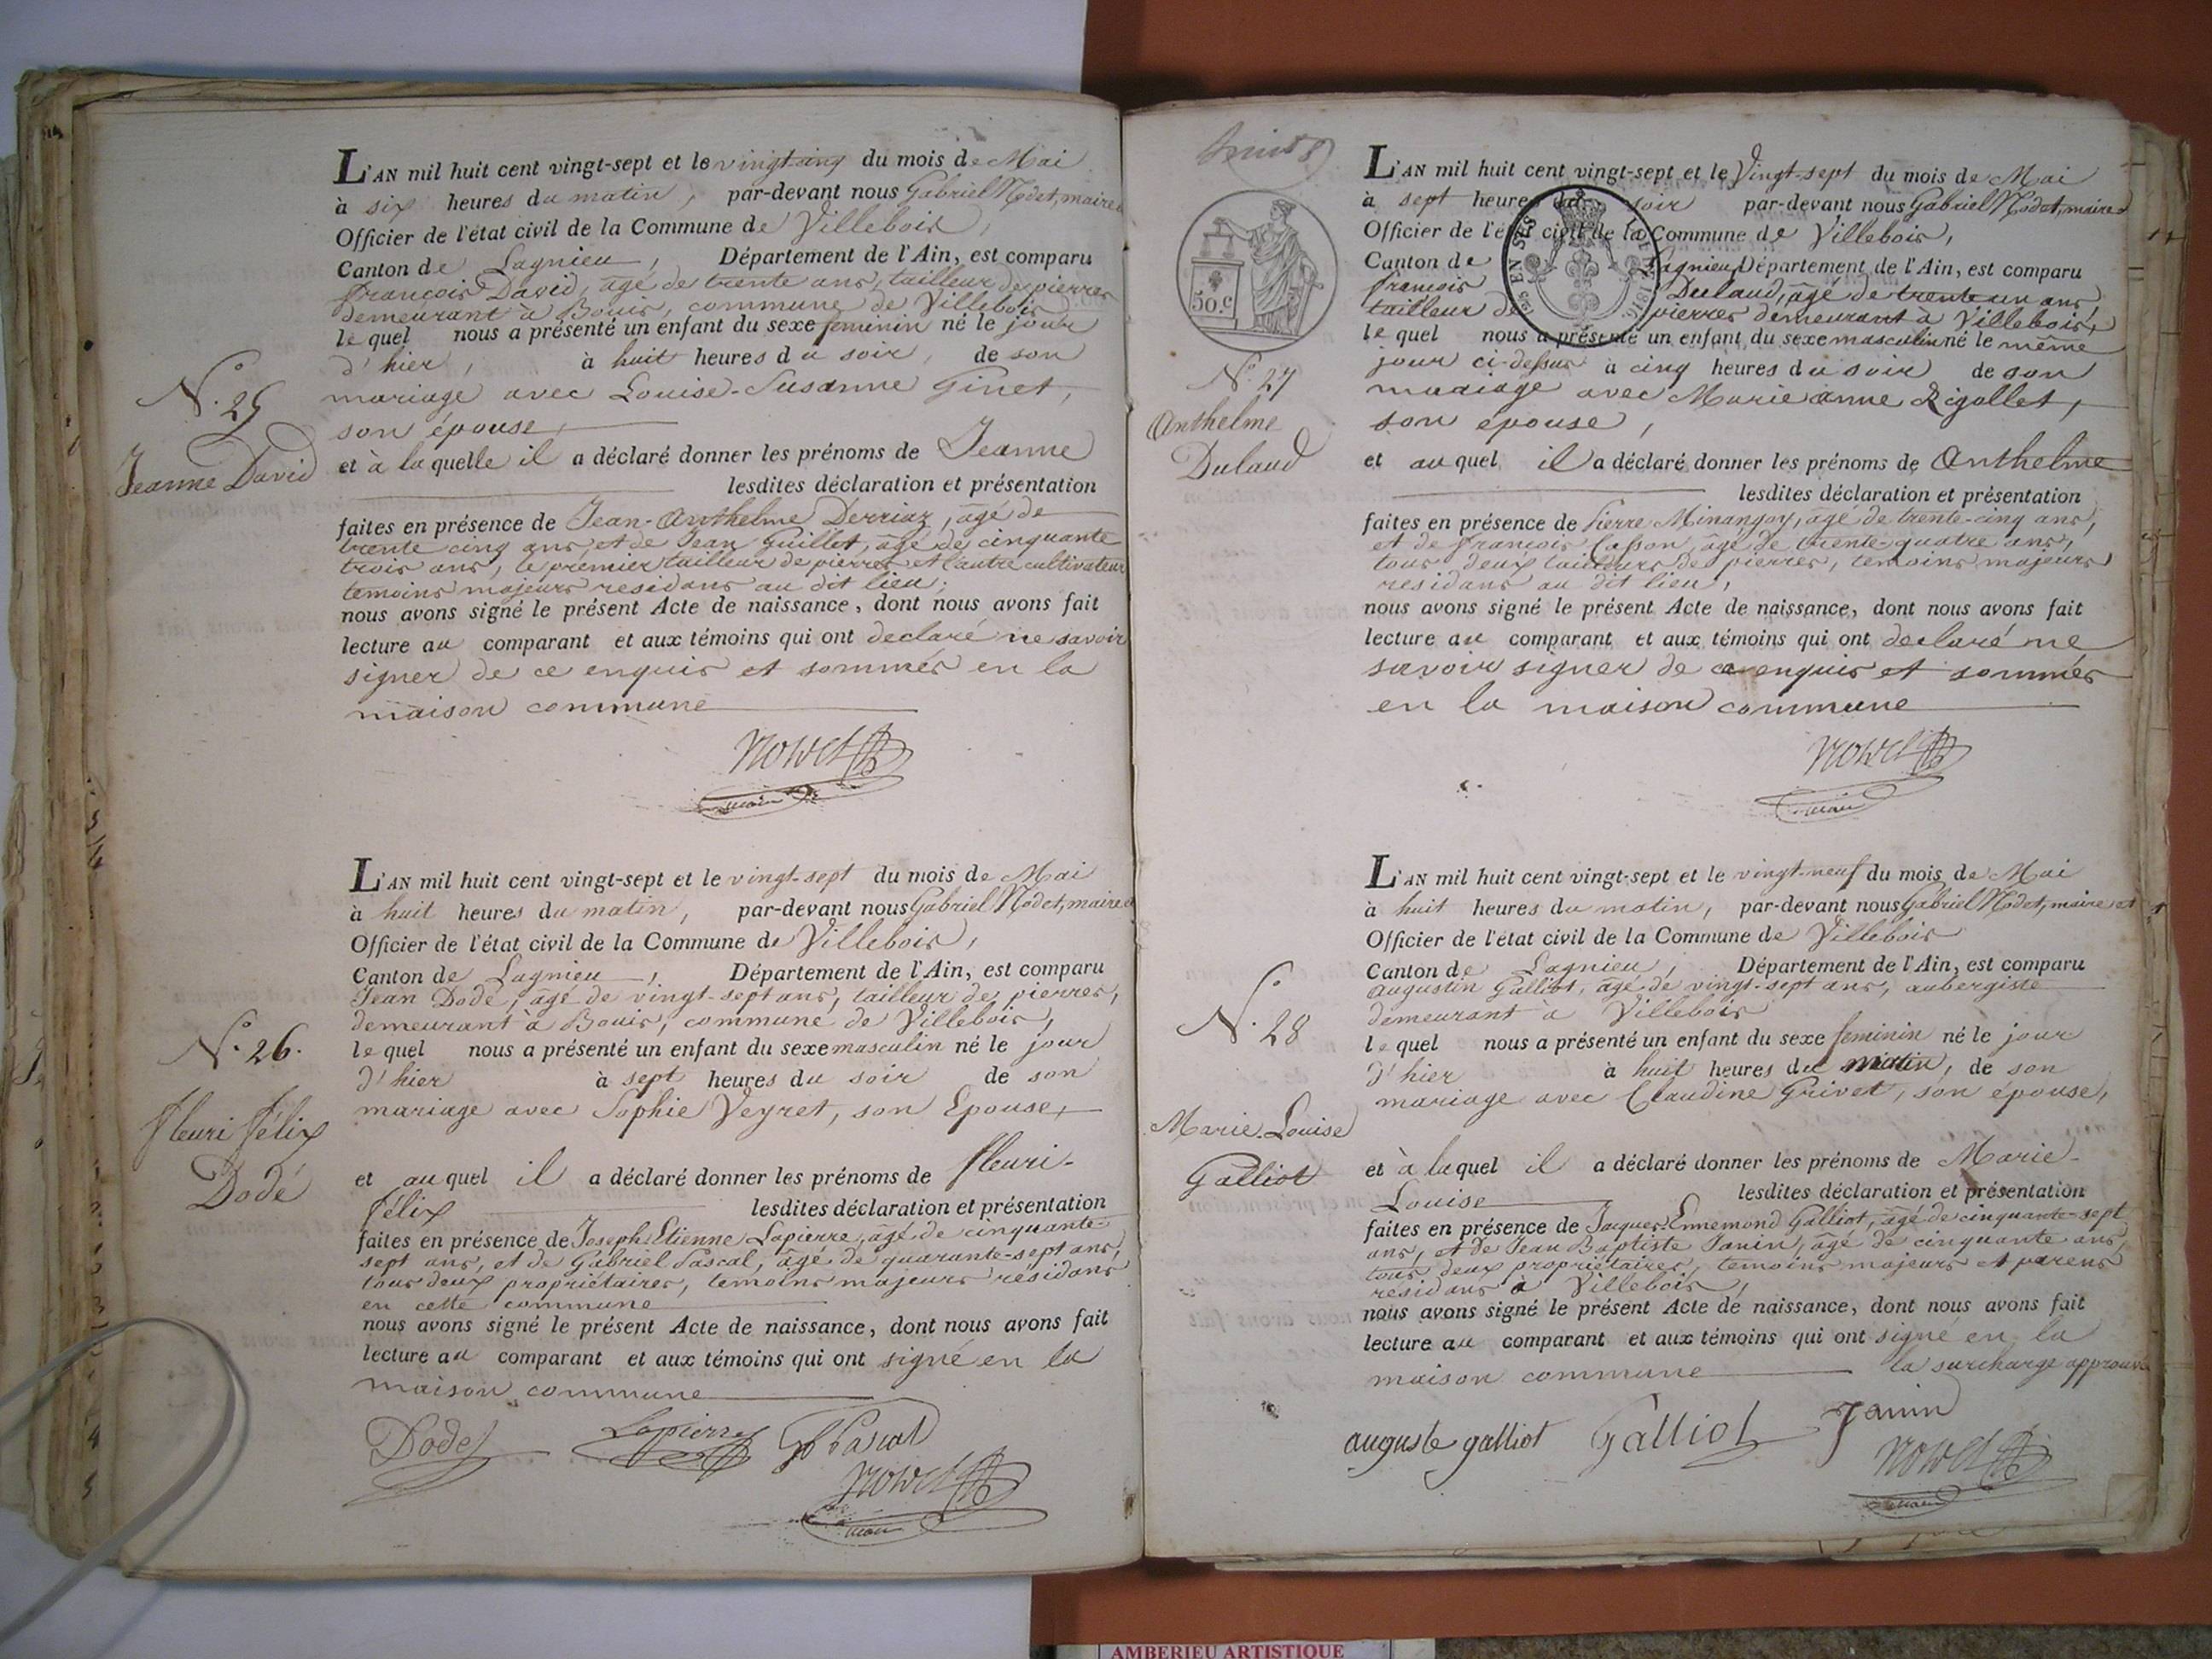 L'AN mil huit cent vingt-sept et le vingt-cinq du mois de Mai
à six heures du matin, par-devant nous Gabriel Nodet, maire
Officier de l'état civil de la Commune de Villebois,
Canton de Lagnieu, Département de l'Ain, est comparu
François David, âgé de trente ans, tailleur de pierres
demeurant à Bouis, commune de Villebois
le quel nous a présenté un enfant du sexe feminin né le jour
d'hier, à huit heures du soir, de son
mariage avec Louise-Susanne Ginet,
son épouse,
et à la quelle il a déclaré donner les prénoms de Jeanne
lesdites déclaration et présentation
faites en présence de Jean-Anthelme Derriaz, âgé de
trente cinq ans, et de Jean Guillet, âgé de cinquante
trois ans, le premier tailleur de pierres et l'autre cultivateur
temoins majeurs residans au dit lieu;
nous avons signé le présent Acte de naissance, dont nous avons fait
lecture au comparant et aux témoins qui ont declaré ne savoir
signer de ce enquis et sommés en la
maison commune
N° 25
Jeanne David
Nodet
maire
L'AN mil huit cent vingt-sept et le vingt-sept du mois de Mai
à huit heures du matin, par-devant nous Gabriel Nodet, maire
Officier de l'état civil de la Commune de Villebois,
Canton de Lagnieu, Département de l'Ain, est comparu
Jean Dodé, âgé de vingt-sept ans, tailleur de pierres,
demeurant à Bouis, commune de Villebois,
le quel nous a présenté un enfant du sexe masculin né le jour
d'hier à sept heures du soir de son
mariage avec Sophie Veyret, son Epouse,
et au quel il a déclaré donner les prénoms de fleuri-
félix lesdites déclaration et présentation
faites en présence de Joseph Etienne Lapierre, âgé de cinquante-
sept ans, et de Gabriel Pascal, âgé de quarante-sept ans,
tous deux propriétaires, temoins majeurs résidans
en cette commune
nous avons signé le présent Acte de naissance, dont nous avons fait
lecture au comparant et aux témoins qui ont signé en la
maison commune
N° 26.
fleuri félix
Dodé
Dode Lapierre Gb Pascal
Nodet
maire
50.c
L'AN mil huit cent vingt-sept et le Vingt-sept du mois de Mai
à sept heures du soir par-devant nous Gabriel Nodet, maire
Officier de l'état civil de la Commune de Villebois,
Canton de Lagnieu, Département de l'Ain, est comparu
françois Dulaud, âgé de trente un ans,
tailleur de pierres demeurant à Villebois,
le quel nous a présenté un enfant du sexe masculin né le même
jour ci-dessus à cinq heures du soir de son
mariage avec Marie anne Rigollet,
son épouse,
et au quel il a déclaré donner les prénoms de Anthelme
lesdites déclaration et présentation
faites en présence de Pierre Minangoy, âgé de trente-cinq ans,
et de françois Casson, âgé de trente-quatre ans,
tous deux tailleurs de pierres, temoins majeurs
residans au dit lieu,
nous avons signé le présent Acte de naissance, dont nous avons fait
lecture au comparant et aux témoins qui ont declaré ne
savoir signer de ce enquis et sommés
en la maison commune
N° 27
Anthelme
Dulaud
Nodet
maire
L'AN mil huit cent vingt-sept et le vingt-neuf du mois de Mai
à huit heures du matin, par-devant nous Gabriel Nodet, maire et
Officier de l'état civil de la Commune de Villebois
Canton de Lagnieu, Département de l'Ain, est comparu
Augustin Galliot, âgé de vingt-sept ans, aubergiste
demeurant à Villebois
le quel nous a présenté un enfant du sexe feminin né le jour
d'hier à huit heures du matin, de son
mariage avec Claudine Grivet, son épouse,
et à la quel il a déclaré donner les prénoms de Marie-
Louise lesdites déclaration et présentation
faites en présence de Jacques Ennemond Galliot, âgé de cinquante-sept
ans, et de Jean Baptiste Janin, âgé de cinquante ans,
tous deux propriétaires, temoins majeurs et parens
résidans à Villebois,
nous avons signé le présent Acte de naissance, dont nous avons fait
lecture au comparant et aux témoins qui ont signé en la
maison commune la surcharge approuvé
N° 28
Marie-Louise
Galliot
auguste galliot Galliot Janin
Nodet
maire
AMBERIEU ARTISTIQUE